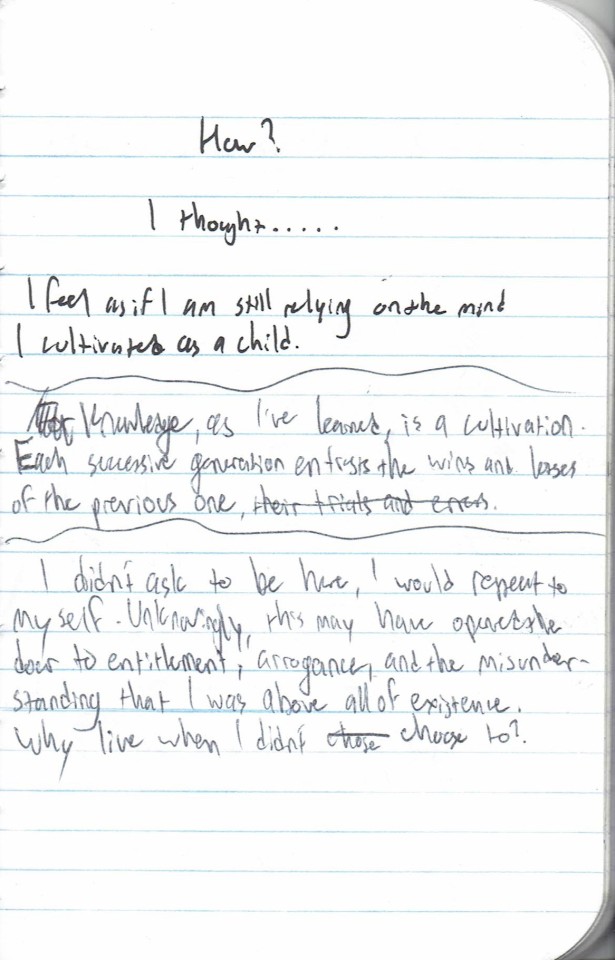 How?
I thought.....
I feel as if I am still relying on the mind
I cultivated as a child.
Knowledge, as I've learned, is a cultivation.
Each successive generation entrusts the wins and losses
of the previous one, their trials and errors.
I didn't ask to be here, I would repeat to
myself. Unknowingly, this may have opened the
door to entitlement, arrogance, and the misunder-
standing that I was above all of existence.
Why live when I didn't chose choose to?